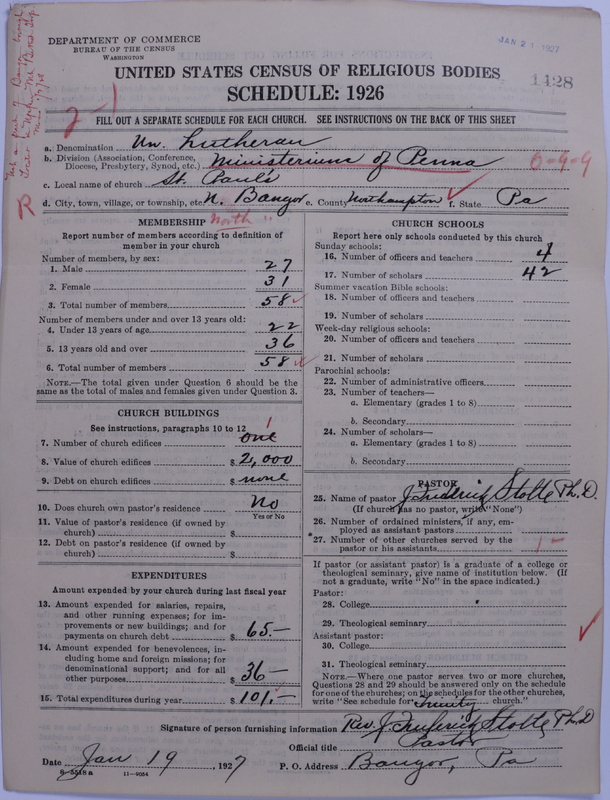 DEPARTMENT OF COMMERCE
BUREAU OF THE CENSUS
WASHINGTON
JAN 21 1927
1428
UNITED STATES CENSUS OF RELIGIOUS BODIES
SCHEDULE: 1926
FILL OUT A SEPARATE SCHEDULE FOR EACH CHURCH. SEE INSTRUCTIONS ON THE BACK OF THIS SHEET
a. Denomination Un. Lutheran
b. Division (Association, Conference, Diocese, Presbytery, Synod, etc.) Ministerium of Penna
0-9-9
c. Local name of church St. Paul's
R
d. City, town, village, or township, etc. N. Bangor e. County Northampton f. State Pa
North "
MEMBERSHIP
Report number of members according to definition of
member in your church
Number of members, by sex:
1. Male 27
2. Female 31
3. Total number of members 58
Number of members under and over 13 years old:
4. Under 13 years of age 22
5. 13 years old and over 36
6. Total number of members 58
NOTE.—The total given under Question 6 should be the
same as the total of males and females given under Question 3.
CHURCH BUILDINGS
See instructions, paragraphs 10 to 12
7. Number of church edifices one 1
8. Value of church edifices $ 2,000
9. Debt on church edifices $ none
10. Does church own pastor's residence No
Yes or No
11. Value of pastor's residence (if owned by
church) $
12. Debt on pastor's residence (if owned by
church) $
EXPENDITURES
Amount expended by your church during last fiscal year
13. Amount expended for salaries, repairs,
and other running expenses; for im-
provements or new buildings; and for
payments on church debt $ 65.—
14. Amount expended for benevolences, in-
cluding home and foreign missions; for
denominational support; and for all
other purposes $ 36—
15. Total expenditures during year $ 101.—
CHURCH SCHOOLS
Report here only schools conducted by this church
Sunday schools:
16. Number of officers and teachers 4
17. Number of scholars 42
Summer vacation Bible schools:
18. Number of officers and teachers
19. Number of scholars
Week-day religious schools:
20. Number of officers and teachers
21. Number of scholars
Parochial schools:
22. Number of administrative officers
23. Number of teachers—
a. Elementary (grades 1 to 8)
b. Secondary
24. Number of scholars—
a. Elementary (grades 1 to 8)
b. Secondary
PASTOR
25. Name of pastor J. Frederick Stolte Ph.D.
(If church has no pastor, write "None")
26. Number of ordained ministers, if any, em-
ployed as assistant pastors
*27. Number of other churches served by the
pastor or his assistants 1 —
If pastor (or assistant pastor) is a graduate of a college or
theological seminary, give name of institution below. (If
not a graduate, write "No" in the space indicated.)
Pastor:
28. College
29. Theological seminary
Assistant pastor:
30. College
31. Theological seminary
NOTE.—Where one pastor serves two or more churches,
Questions 28 and 29 should be answered only on the schedule
for one of the churches; on the schedules for the other churches,
write "See schedule for Trinity church."
Signature of person furnishing information Rev. J. Frederick Stolte Ph.D
Official title Pastor
Date Jan 19, 1927
P. O. Address Bangor, Pa
8-5518a 11-9054